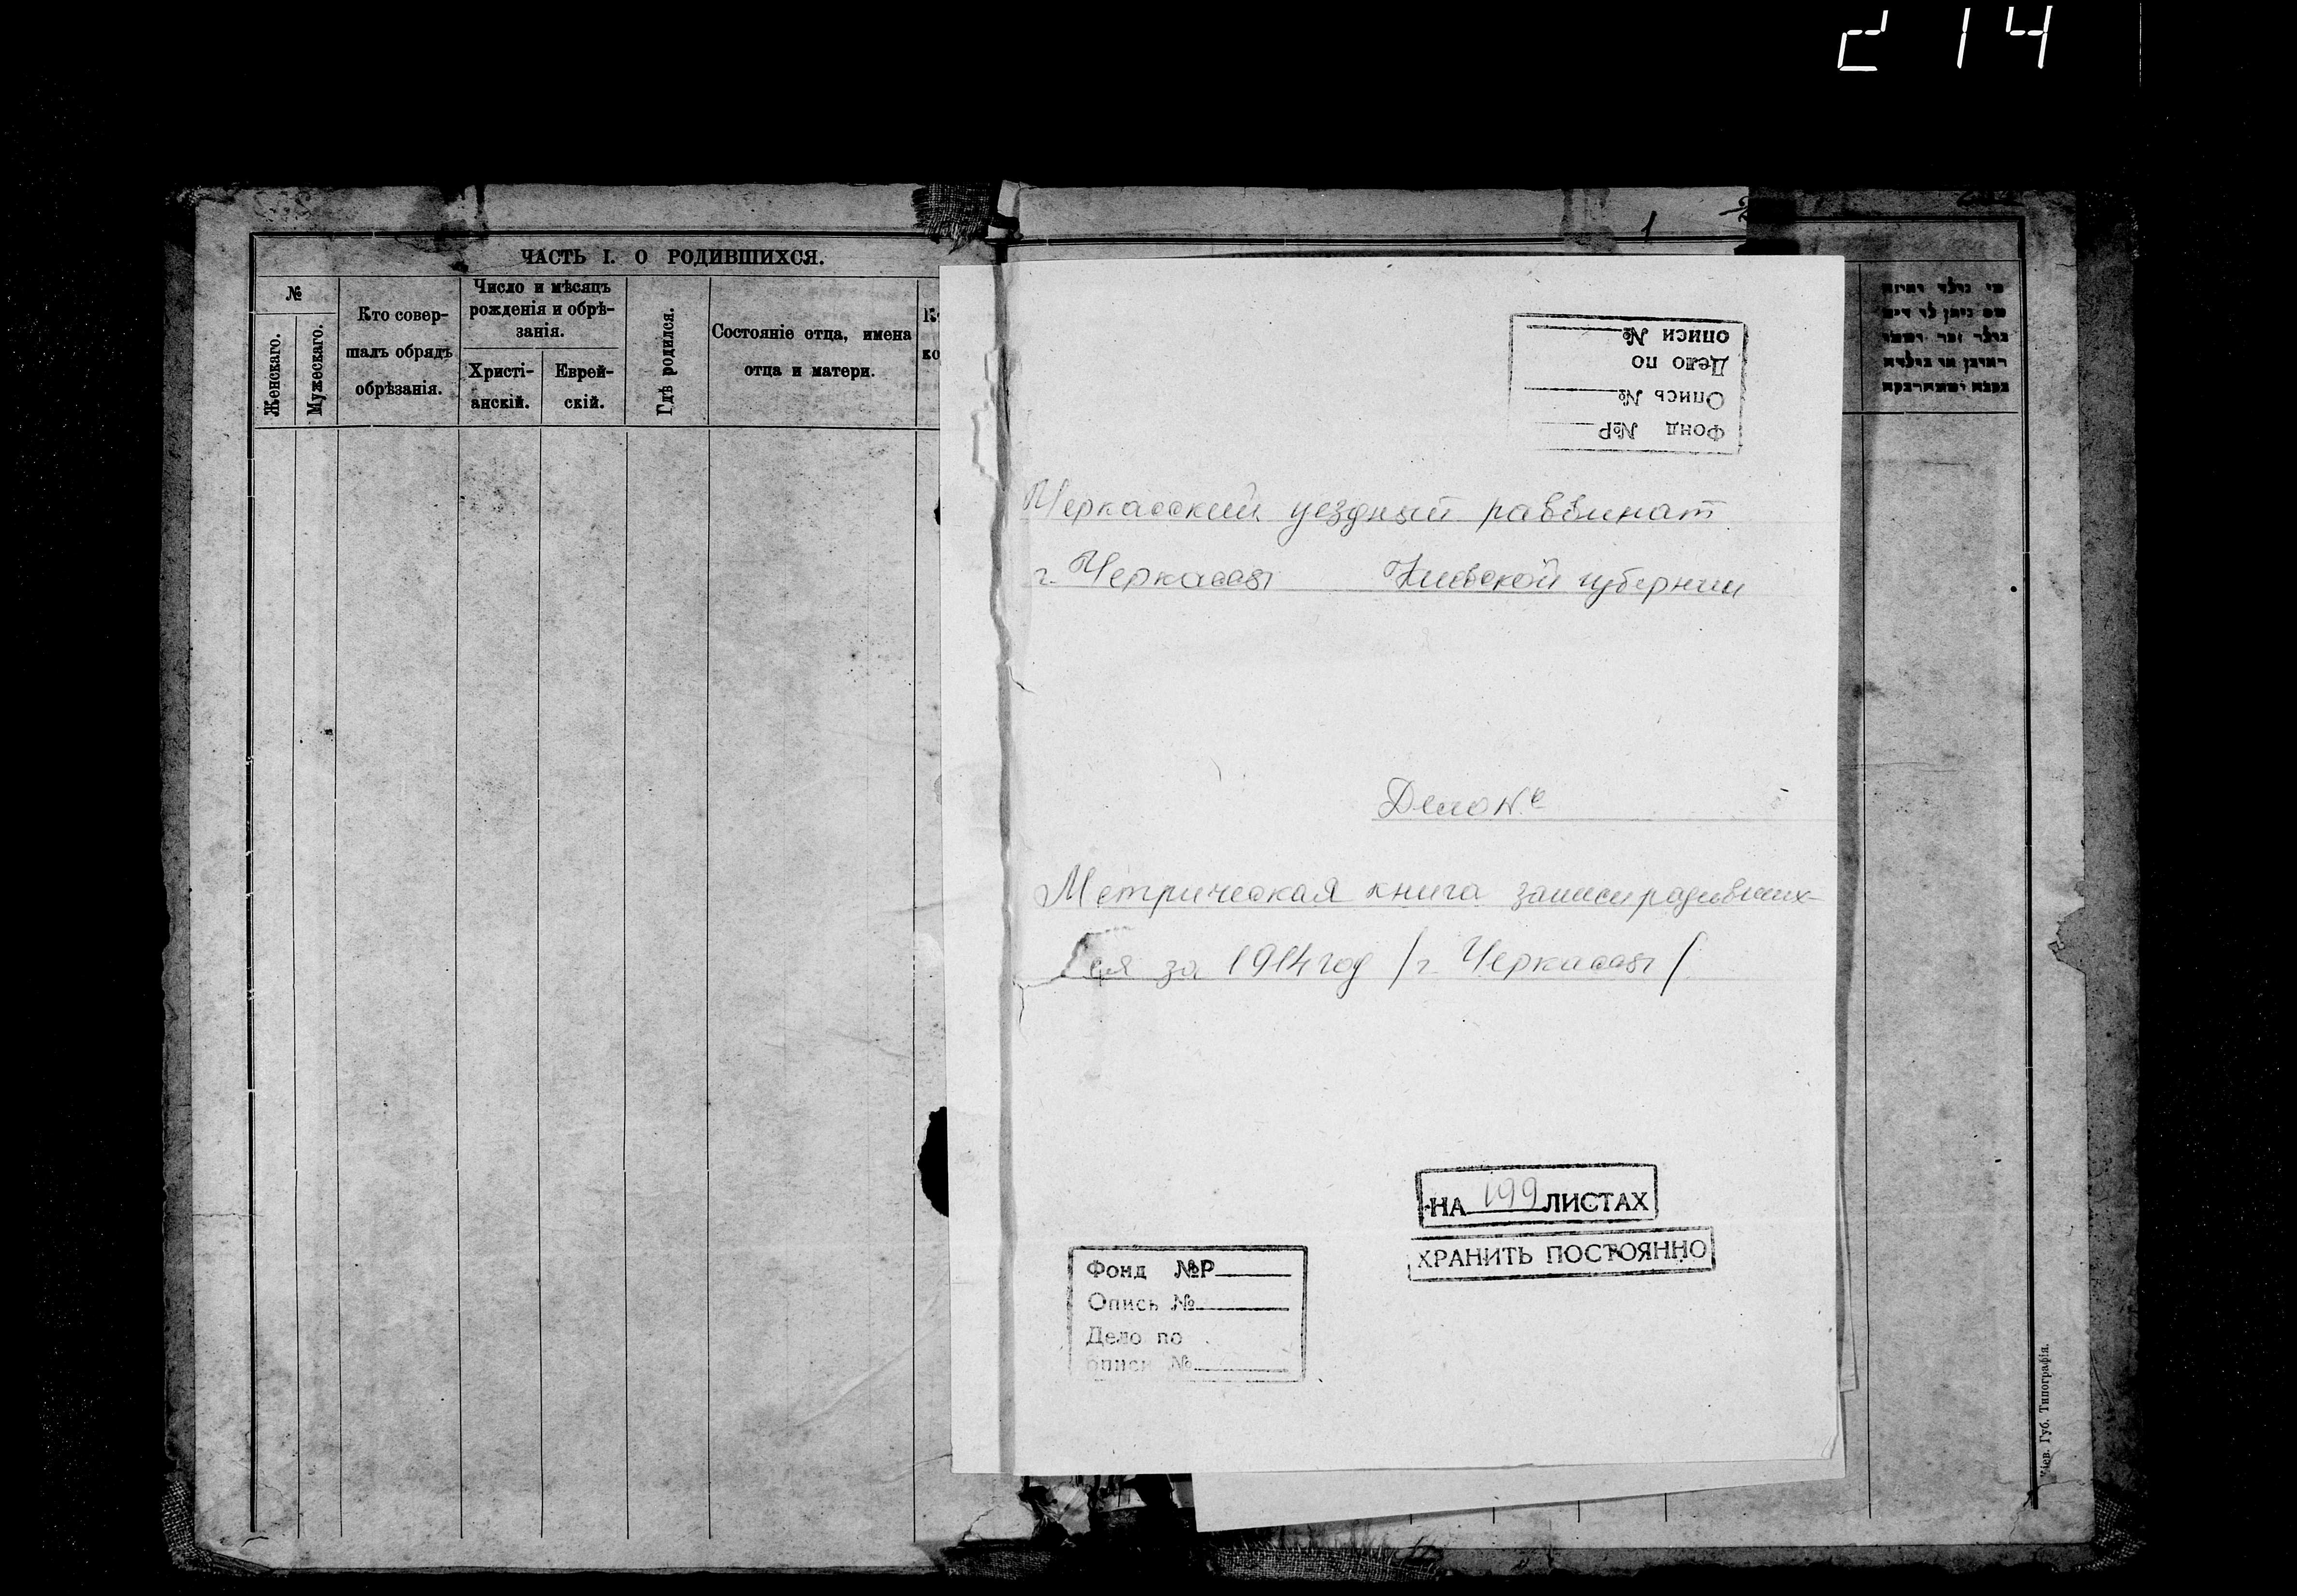 2 14
ЧАСТЬ I. О РОДИВШИХСЯ.
№
Женскаго.
Мужескаго.
Кто совер-
шалъ обрядъ
обрѣзанія.
Число и мѣсяцъ
рожденія и обрѣ-
занія.
Христі-
анскій.
Еврей-
скій.
Гдѣ родился.
Состояніе отца, имена
отца и матери.
1
Фонд №Р
Опись №
Дело по
описи №
Черкасский уездный раввинат
г. Черкассы Киевской губернии
Дело №
Метрическая книга записи родивших-
ся за 1914 год /г. Черкассы/
НА 199 ЛИСТАХ
ХРАНИТЬ ПОСТОЯННО
Фонд №Р
Опись №
Дело по
описи №
Кіев. Губ. Типографія.